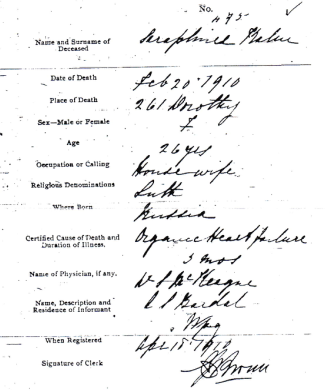 No.
475
Name and Surname of
Deceased
Seraphine
Date of Death
Feb 20 · 1910
Place of Death
261 Dorothy
Sex—Male or Female
F
Age
26 yrs
Occupation or Calling
House wife
Religious Denominations
Luth
Where Born
Russia
Certified Cause of Death and
Duration of Illness.
Organic Heart failure
3 mos
Name of Physician, if any.
Name, Description and
Residence of Informant
Bardal
Wpg
When Registered
Apr 15 · 1910
Signature of Clerk